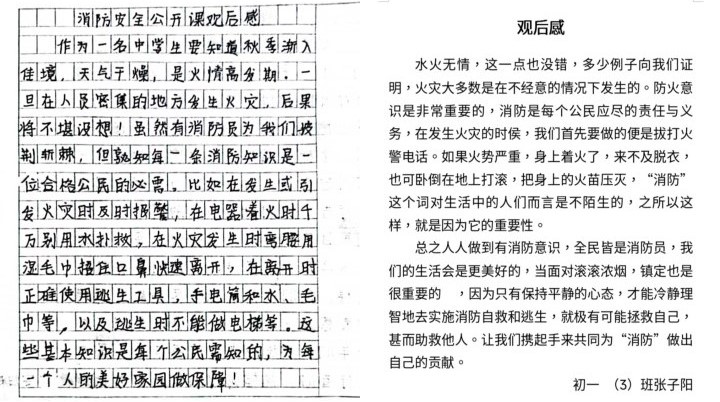 消防安全公开课观后感
作为一名中学生要知道秋季渐入
佳境，天气干燥，是火情高发期。一
旦在人员密集的地方发生火灾，后果
将不堪设想！虽然有消防员为我们披
荆斩棘，但熟知每一条消防知识是一
位合格公民的必需。比如在发生或引
发火灾时及时报警，在电器着火时千
万别用水扑救，在火灾发生时弯腰用
湿毛巾捂住口鼻快速离开，在离开时
正确使用逃生工具，手电筒和水、毛
巾等，以及逃生时不能做电梯等。这
些基本知识是每个公民需知的，为每
一个人的美好家园做保障！
观后感
水火无情，这一点也没错，多少例子向我们证
明，火灾大多数是在不经意的情况下发生的。防火意
识是非常重要的，消防是每个公民应尽的责任与义
务，在发生火灾的时侯，我们首先要做的便是拔打火
警电话。如果火势严重，身上着火了，来不及脱衣，
也可卧倒在地上打滚，把身上的火苗压灭，“消防”
这个词对生活中的人们而言是不陌生的，之所以这
样，就是因为它的重要性。
总之人人做到有消防意识，全民皆是消防员，我
们的生活会是更美好的，当面对滚滚浓烟，镇定也是
很重要的 ，因为只有保持平静的心态，才能冷静理
智地去实施消防自救和逃生，就极有可能拯救自己，
甚而助救他人。让我们携起手来共同为“消防”做出
自己的贡献。
初一 （3）班张子阳